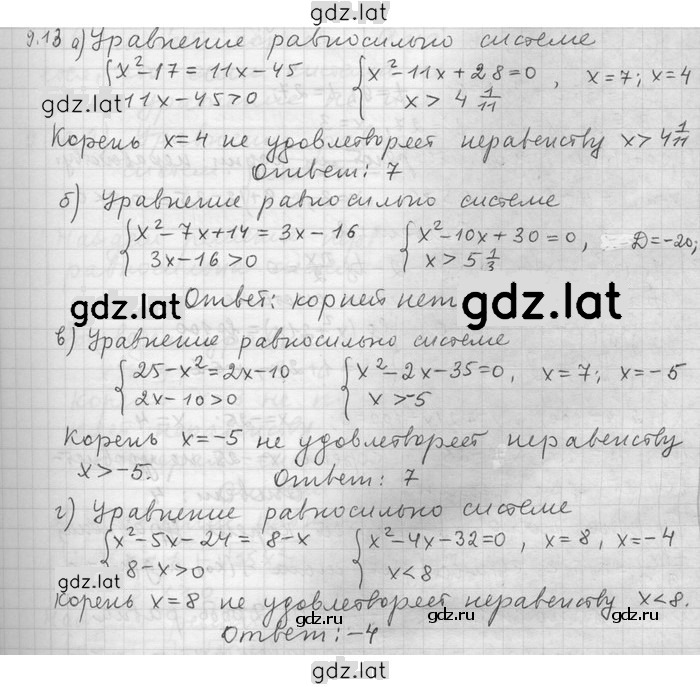 gdz.lat
9.13 а) Уравнение равносильно системе
{x²-17=11x-45 {x²-11x+28=0, x=7; x=4
gdz.lat 11x-45>0 x>4 1/11
Корень x=4 не удовлетворяет неравенству x>4 1/11
Ответ: 7
б) Уравнение равносильно системе
{x²-7x+14=3x-16 {x²-10x+30=0, D=-20;
3x-16>0 x>5 1/3
gdz.lat Ответ: корней нет gdz.lat
в) Уравнение равносильно системе
{25-x²=2x-10 {x²-2x-35=0, x=7; x=-5
2x-10>0 x>-5
Корень x=-5 не удовлетворяет неравенству
x>-5. Ответ: 7
г) Уравнение равносильно системе
{x²-5x-24=8-x {x²-4x-32=0, x=8, x=-4
gdz.lat 8-x>0 x<8
Корень x=8 не удовлетворяет неравенству x<8.
gdz.lat Ответ: -4 gdz.lat
gdz.lat